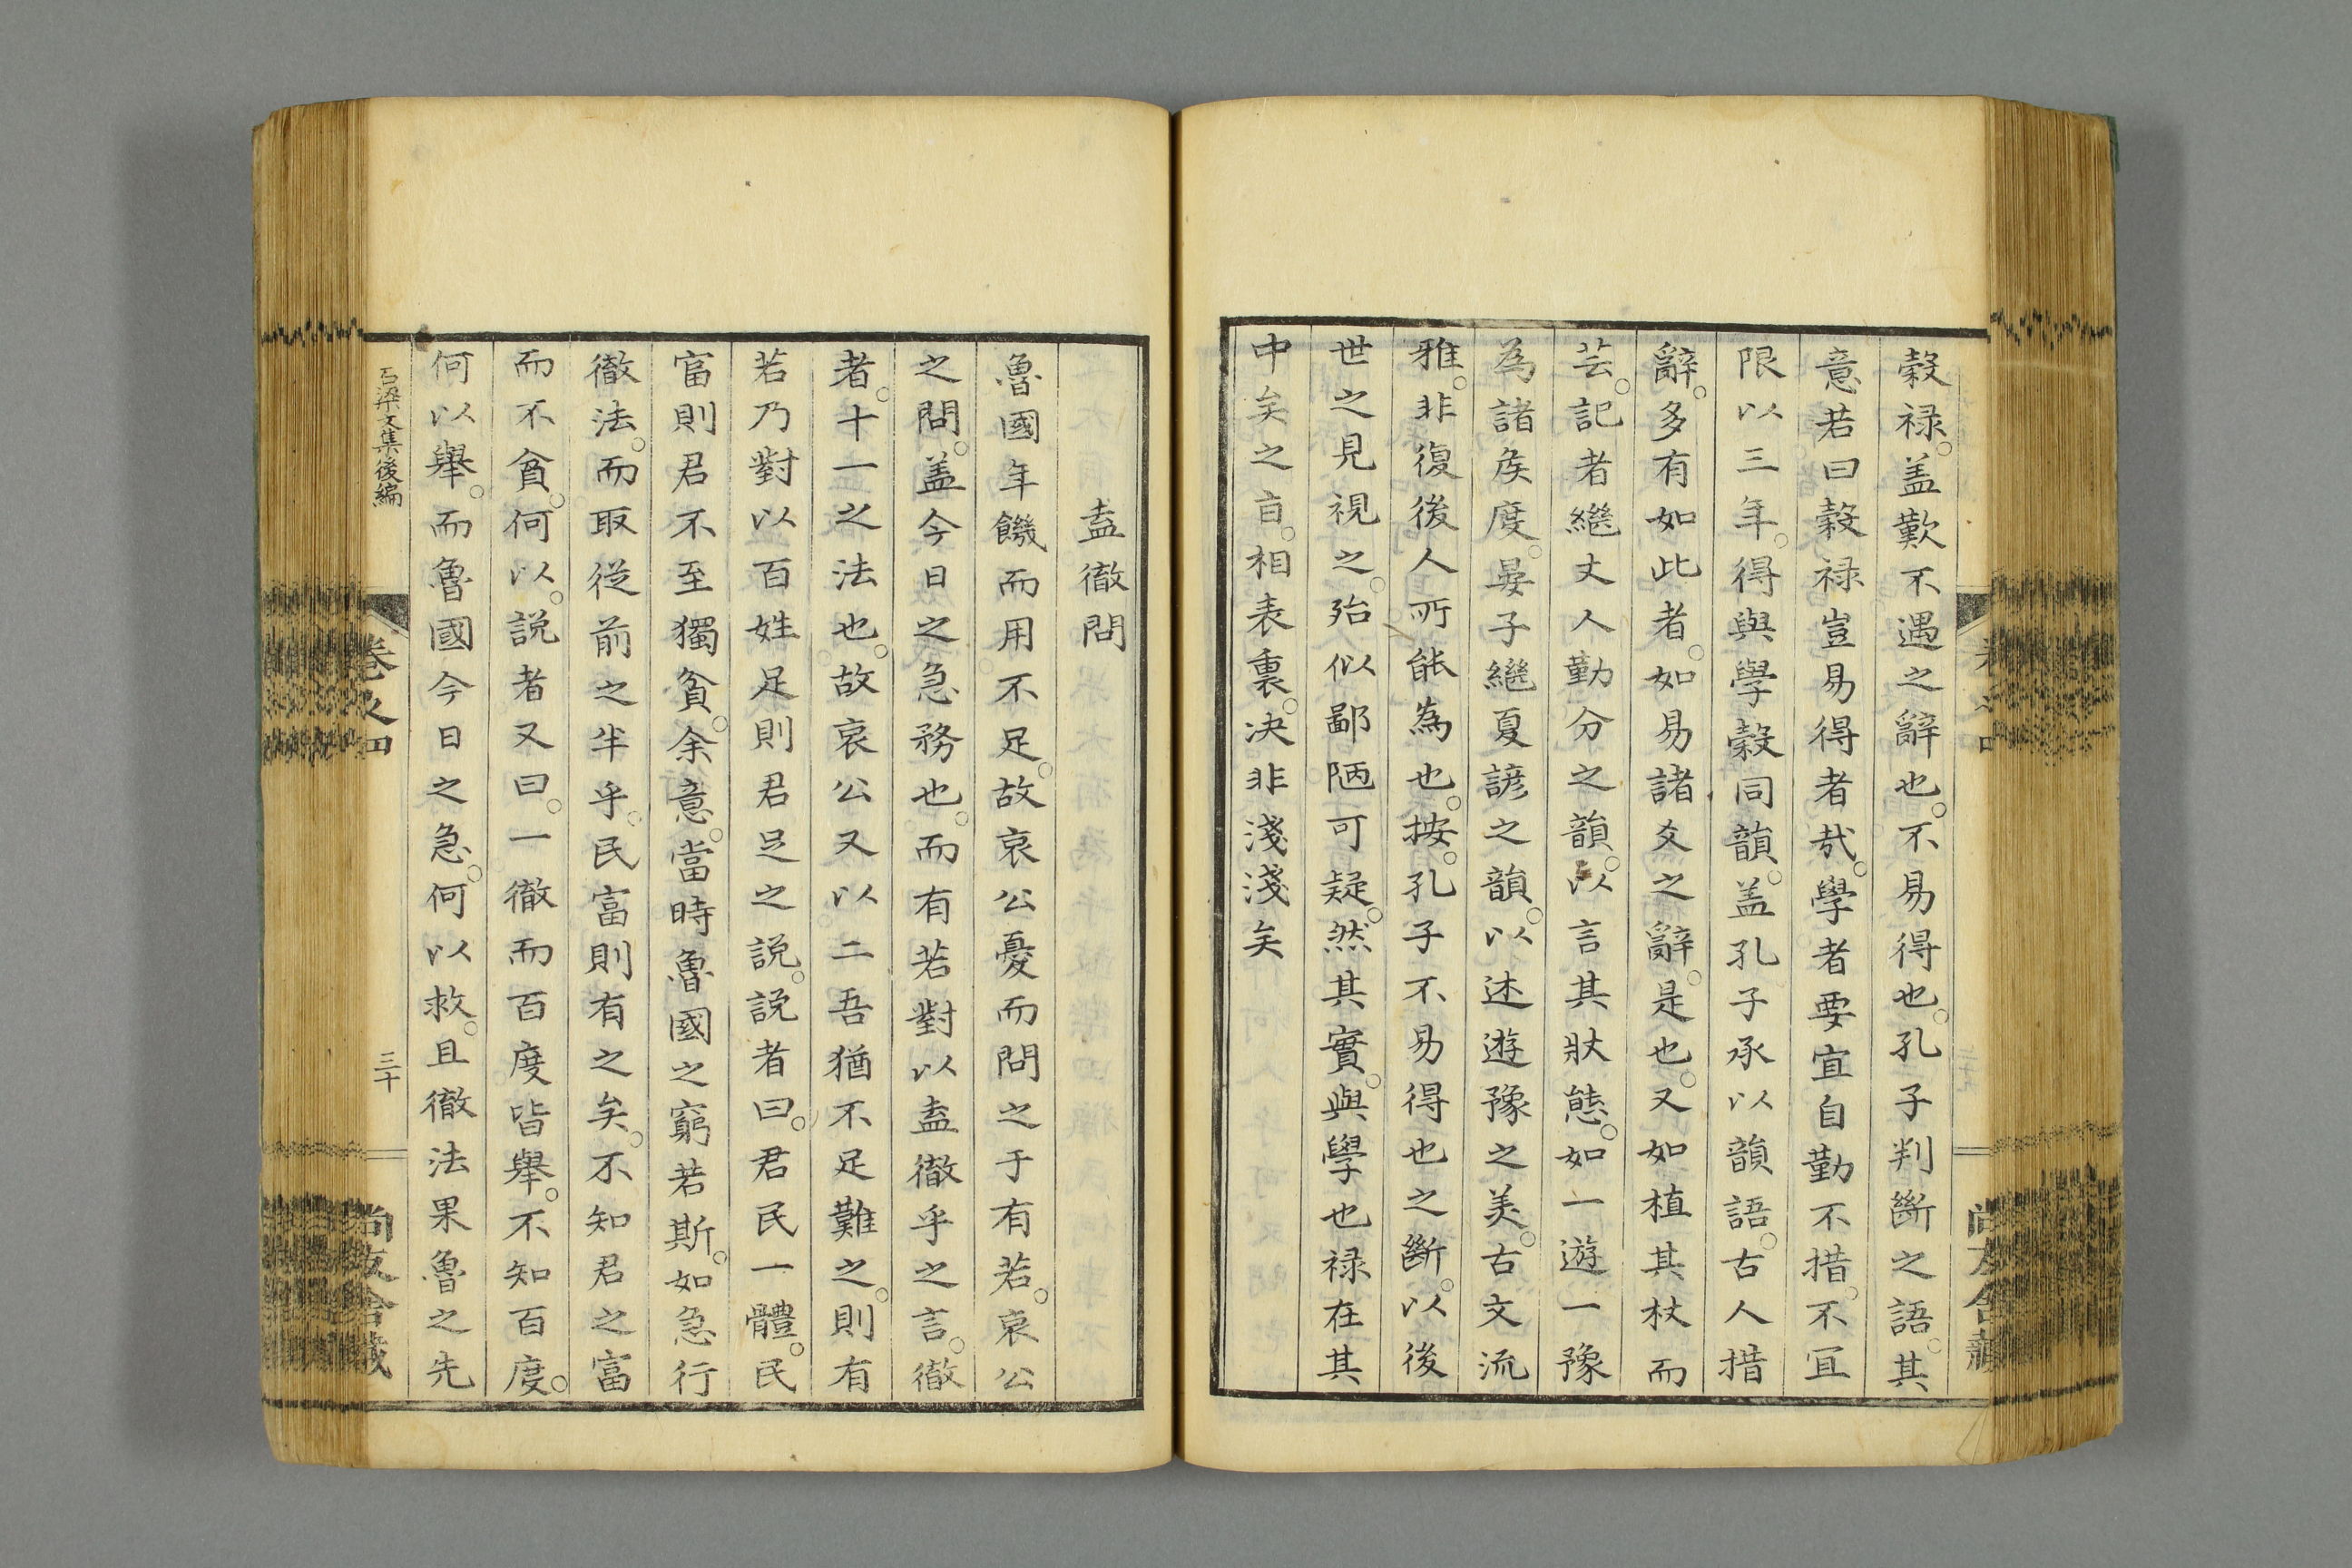 穀禄。盖歎不遇之辭也。不易得也。孔子判斷之語。其
意若曰穀禄豈易得者哉。學者要宜自勤不措。不冝
限以三年。得與學穀同韻。盖孔子承以韻語。古人措
辭。多有如此者。如易諸爻之辭。是也。又如植其杖而
芸。記者繼丈人勤分之韻。以言其狀態。如一遊一豫
為諸矦度。晏子繼夏諺之韻。以述遊豫之美。古文流
雅。非復後人所能為也。按。孔子不易得也之斷。以後
世之見視之。殆似鄙陋可疑。然其實。與學也禄在其
中矣之㫖。相表裏。决非淺淺矣
盍徹問
魯國年饑而用不足。故哀公憂而問之于有若。哀公
之問。盖今日之急務也。而有若對以盍徹乎之言。徹
者。十一之法也。故哀公又以二吾猶不足難之。則有
若乃對以百姓足則君足之説。説者曰。君民一體。民
富則君不至獨貧。余意。當時魯國之窮若斯。如急行
徹法。而取従前之半乎。民富則有之矣。不知君之富
而不貧。何以。説者又曰。一徹而百度皆舉。不知百度。
何以舉。而魯國今日之急。何以救。且徹法果魯之先
梁文集後編
卷之四
三十
尚友舎蔵